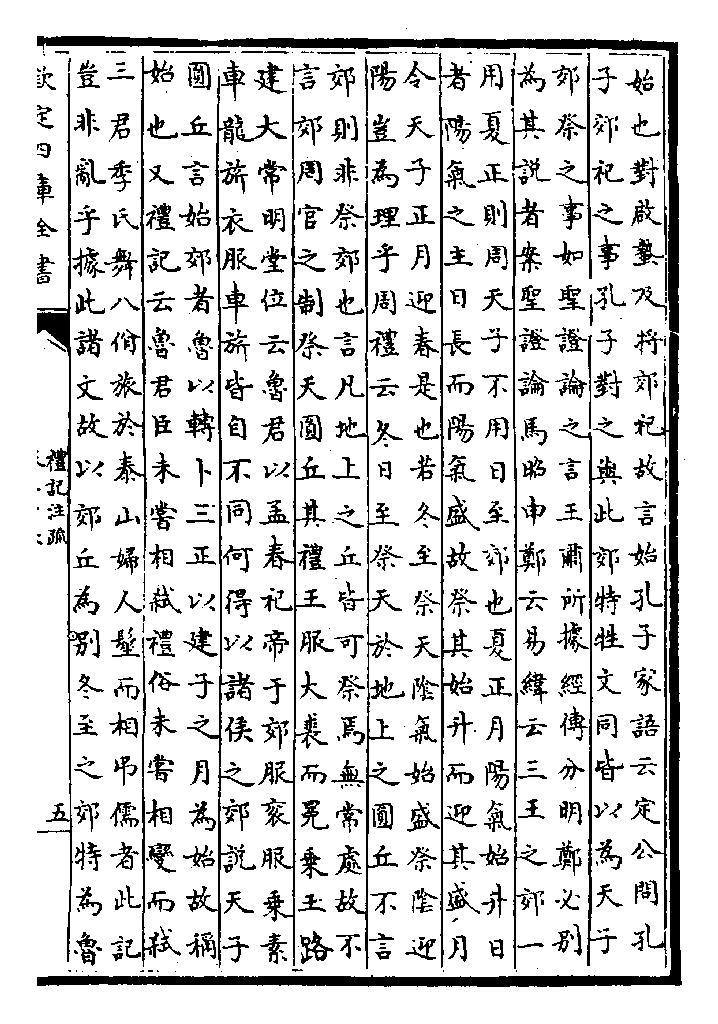 始也對啟蟄及將郊祀故言始孔子家語云定公問孔
子郊祀之事孔子對之與此郊特牲文同皆以為天子
郊祭之事如聖證論之言王肅所據經傳分明鄭必別
為其說者案聖證論馬昭申鄭云易緯云三王之郊一
用夏正則周天子不用日至郊也夏正月陽氣始升日
者陽氣之主日長而陽氣盛故祭其始升而迎其盛月
令天子正月迎春是也若冬至祭天陰氣始盛祭陰迎
陽豈為理乎周禮云冬日至祭天於地上之圓丘不言
郊則非祭郊也言凡地上之丘皆可祭焉無常處故不
言郊周官之制祭天圓丘其禮王服大裘而冕乘玉路
建大常明堂位云魯君以孟春祀帝于郊服衮服乘素
車龍旂衣服車旂皆自不同何得以諸侯之郊說天子
圓丘言始郊者魯以轉卜三正以建子之月為始故稱
始也又禮記云魯君臣未嘗相弑禮俗未嘗相變而弑
三君季氏舞八佾旅於泰山婦人髽而相弔儒者此記
豈非亂乎據此諸文故以郊丘為別冬至之郊特為魯
欽定四庫全書
禮記注疏
五